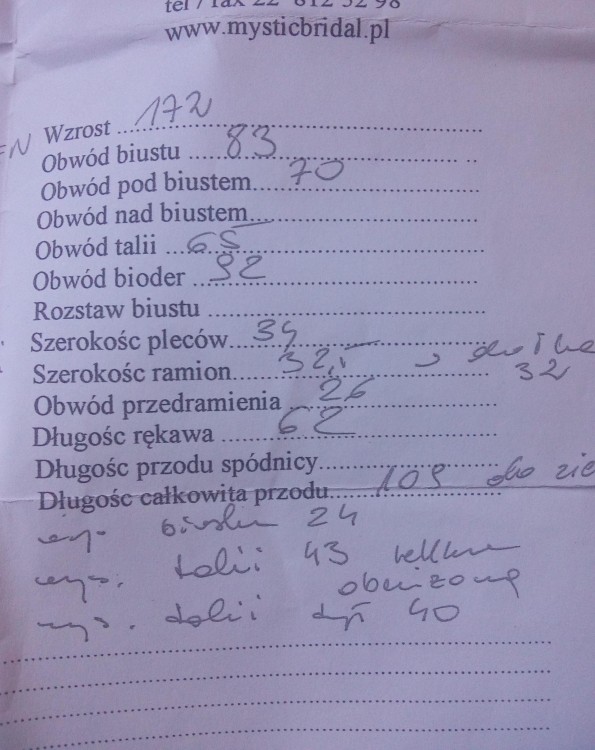 tel / fax 22 812 52 98
www.mysticbridal.pl
Wzrost 172
Obwód biustu 83
Obwód pod biustem 70
Obwód nad biustem
Obwód talii 65
Obwód bioder 92
Rozstaw biustu
Szerokośc pleców 34
Szerokośc ramion 32,5
32
Obwód przedramienia 26
Długośc rękawa 62
Długośc przodu spódnicy
Długośc całkowita przodu 109 do zie
wys. biustu 24
wys. talii 43 lekko
obniżona
wys. talii tył 40